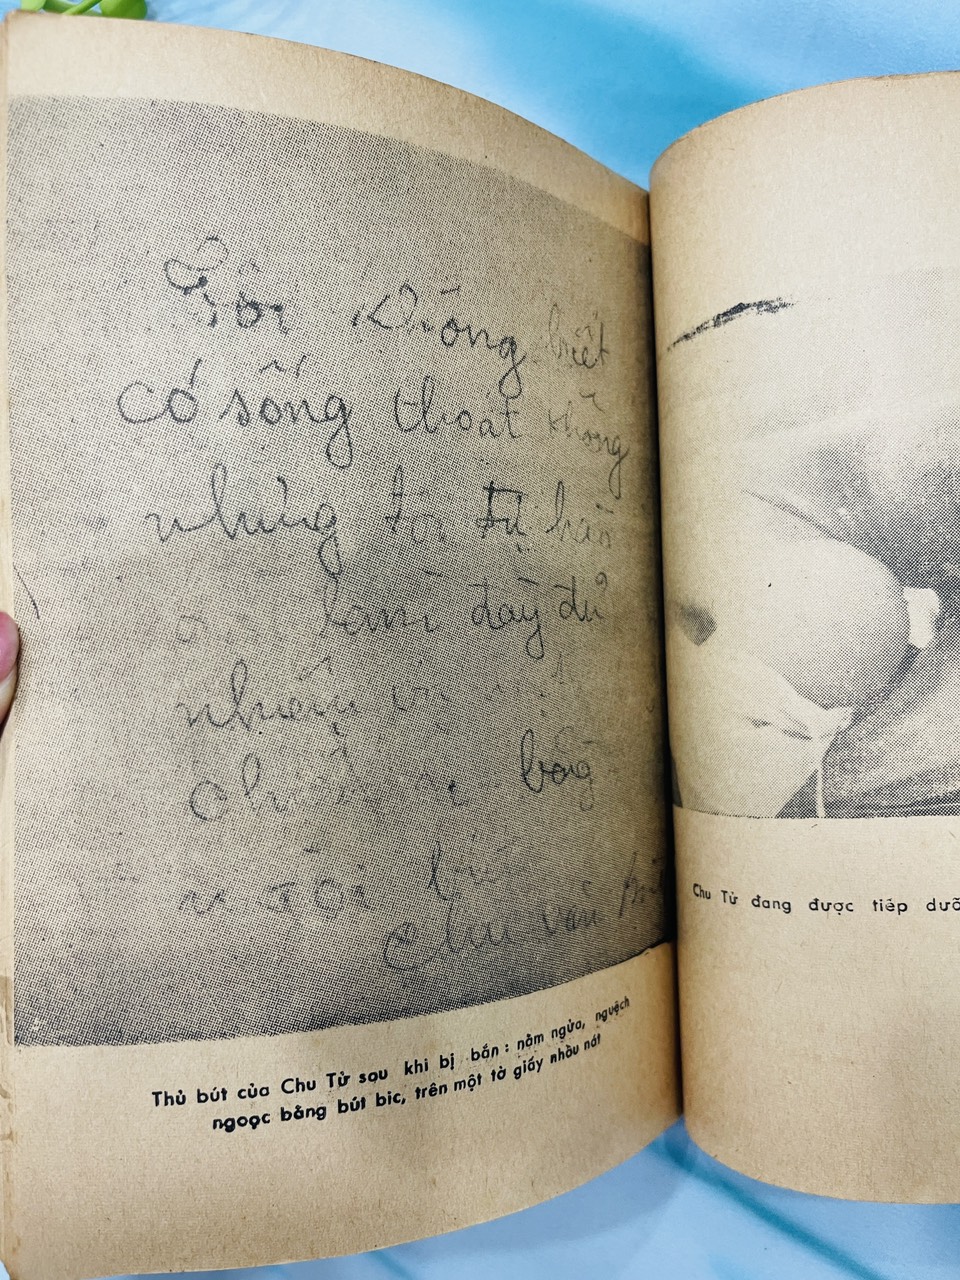 Tôi không biết
có sống thoát không
nhưng tôi tự hào
làm đầy đủ
nhiệm
bằng
Chu văn
Thủ bút của Chu Tử sau khi bị bắn : nằm ngửa, nguệch
ngoạc bằng bút bic, trên một tờ giấy nhầu nát
Chu Tử đang được tiếp